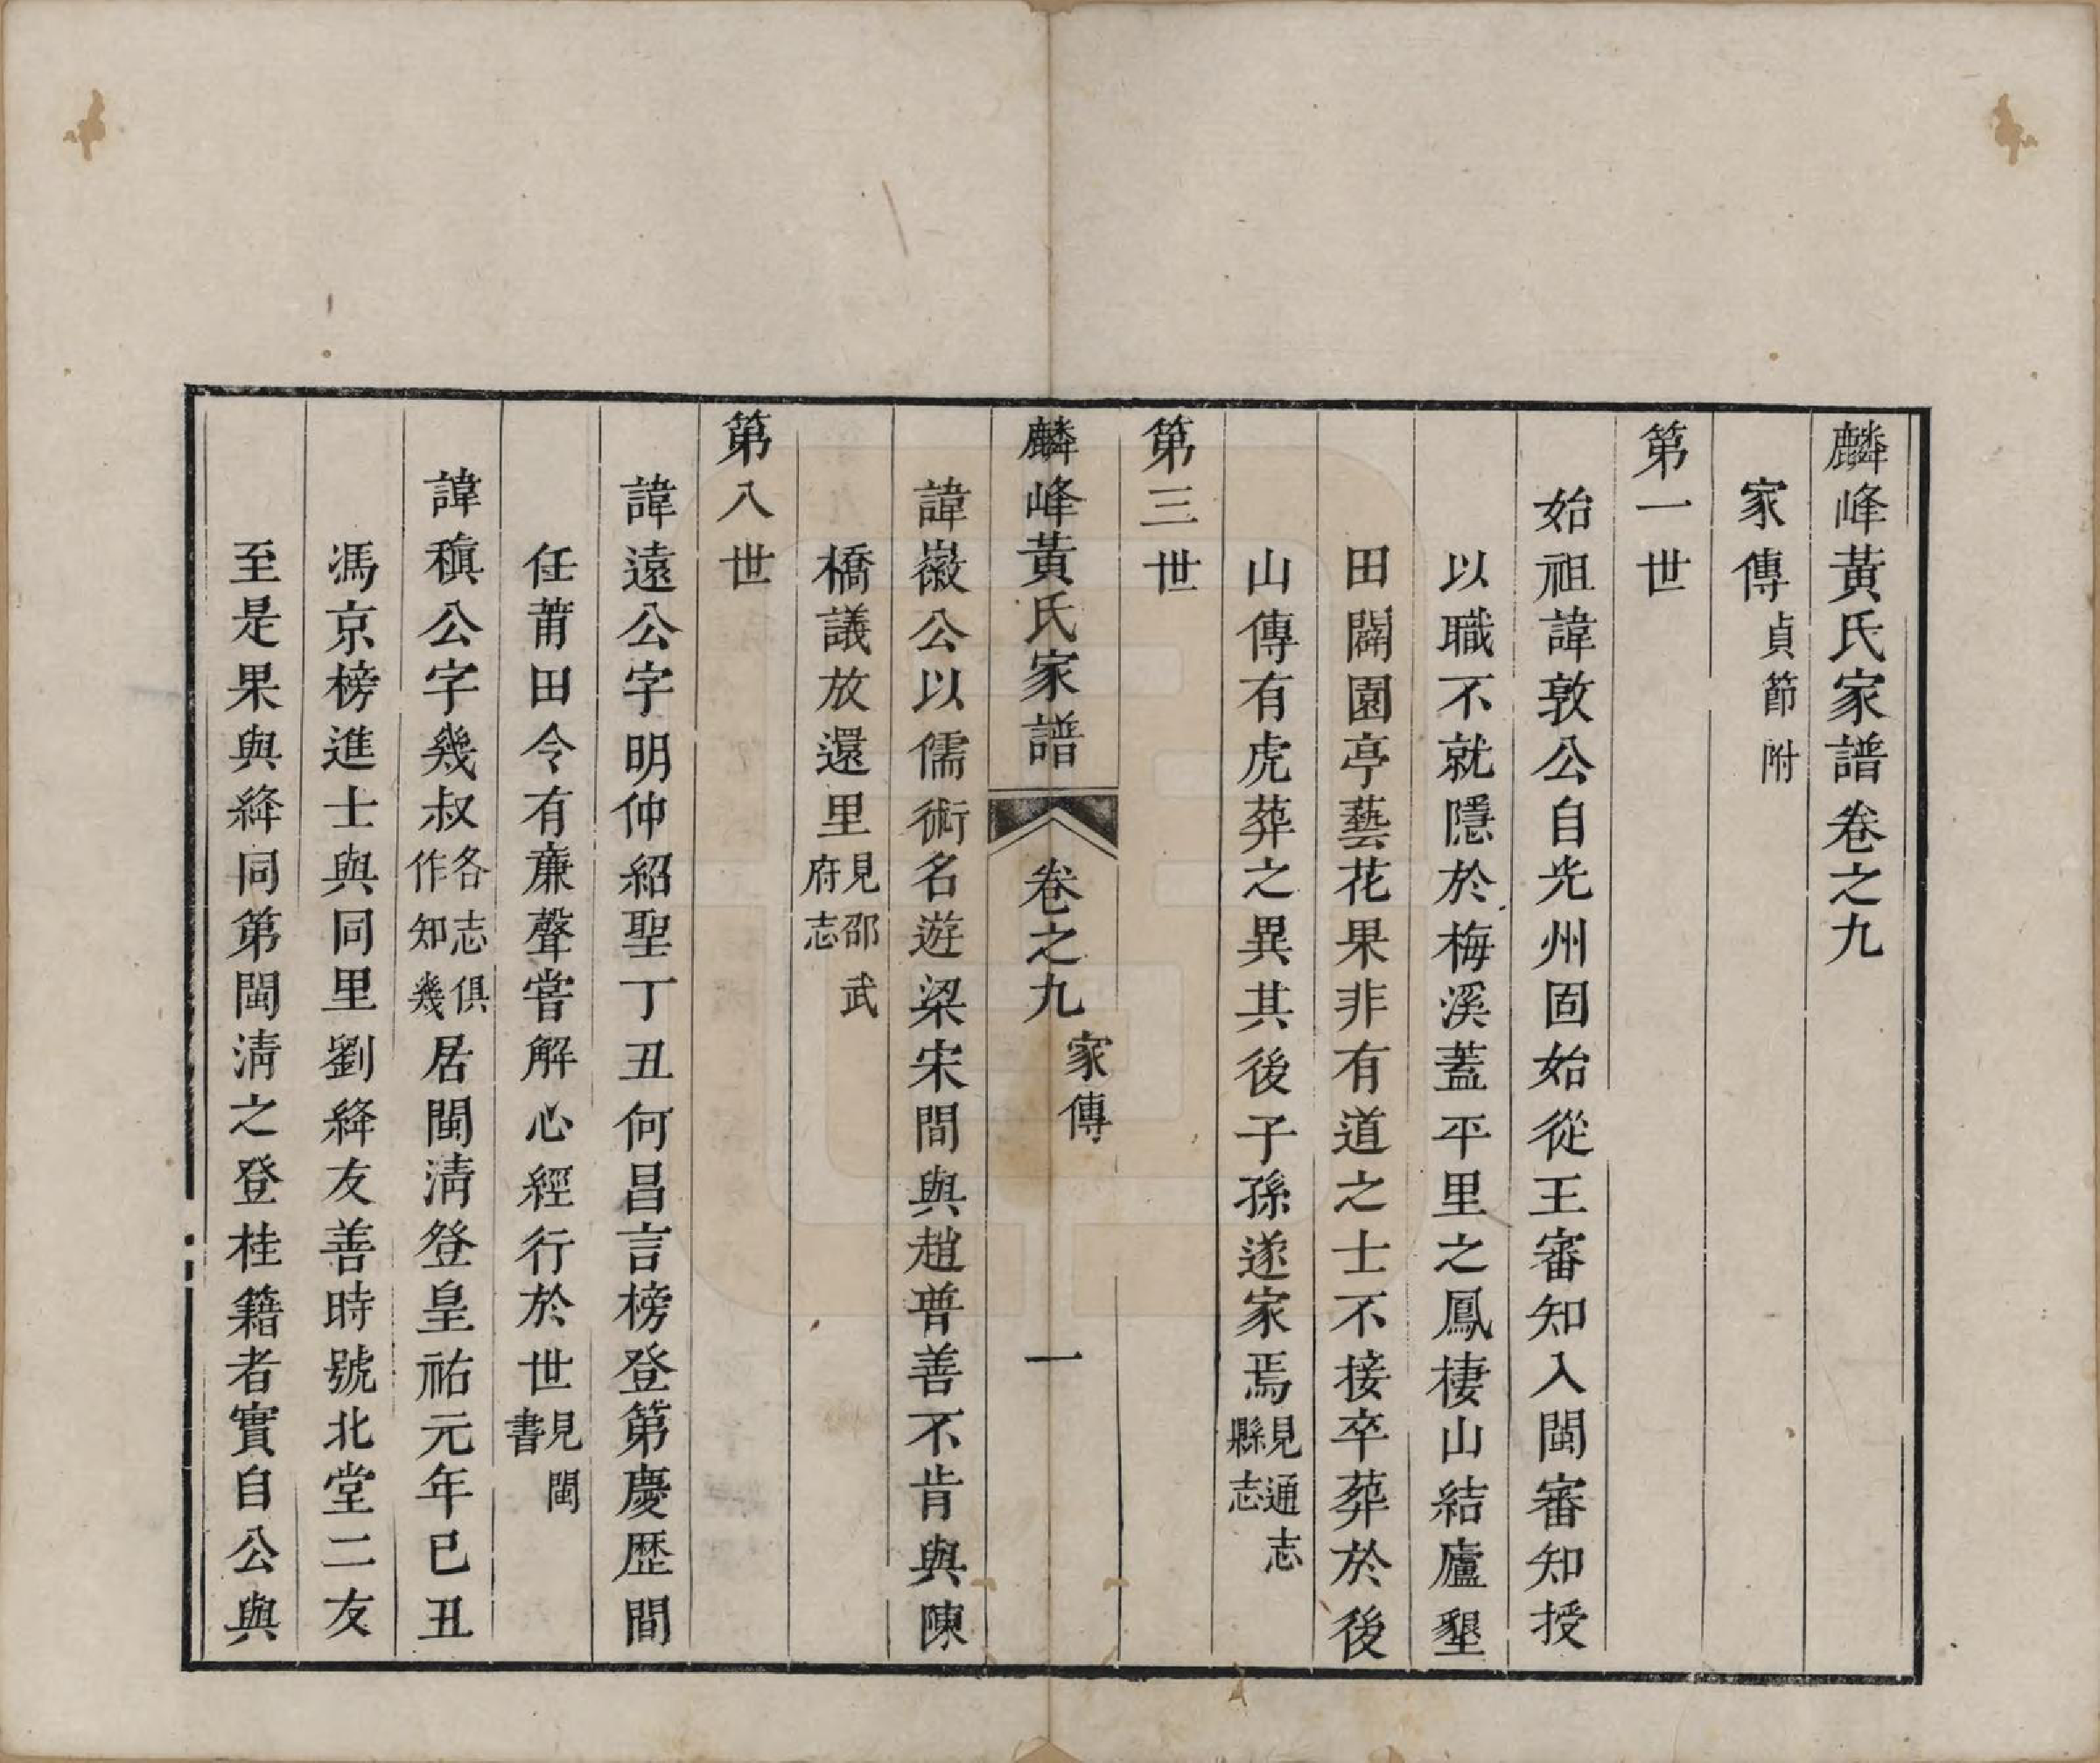 麟峰黃氏家譜卷之九
家傳貞節附
第一世
始祖諱敦公自光州固始從王審知入閩審知授
以職不就隱於梅溪蓋平里之鳳棲山結廬墾
田闢園亭藝花果非有道之士不接卒葬於後
山傳有虎葬之異其後子孫遂家焉見通志縣志
第三世
麟峰黃氏家譜 卷之九 家傳 一
諱嶶公以儒術名遊梁宋間與趙普善不肯與陳
橋議放還里見邵武府志
第八世
諱遠公字明仲紹聖丁丑何昌言榜登第慶歷間
任莆田令有廉聲嘗解心經行於世見閩書
諱稹公字幾叔各志俱作知幾居閩清登皇祐元年已丑
馮京榜進士與同里劉絳友善時號北堂二友
至是果與絳同第閩清之登桂籍者實自公與